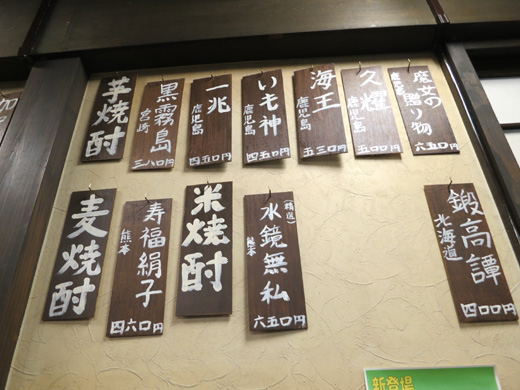 芋焼酎
黒霧島
宮崎
三八〇円
一兆
鹿児島
四五〇円
いも神
鹿児島
四五〇円
海王
鹿児島
五三〇円
久耀
鹿児島
五〇〇円
魔女の贈り物
鹿児島
六五〇円
麦焼酎
寿福絹子
熊本
四六〇円
米焼酎
(精選)
水鏡無私
熊本
六五〇円
鍛高譚
北海道
四〇〇円
新登場